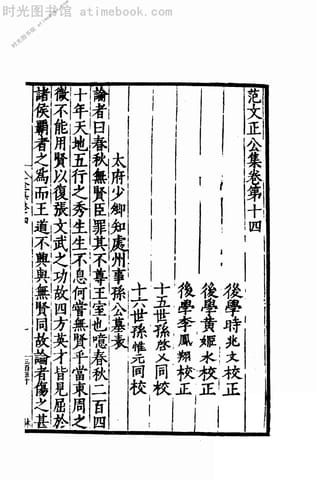 时光图书馆 - atimebook.com
范文正公集卷第十四
後學時兆文校正
後學黃姬水校正
後學李鳳翔校正
十五世孫啓乂同校
十六世孫惟元同校
太府少卿知處州事孫公墓表
論者曰春秋無賢臣罪其不尊王室也噫春秋二百四
十年天地五行之秀生生不息何嘗無賢乎當東周之
微不能用賢以復張文武之功故四方英才皆見屈於
諸侯覇者之爲而王道不興與無賢同故論者傷之甚